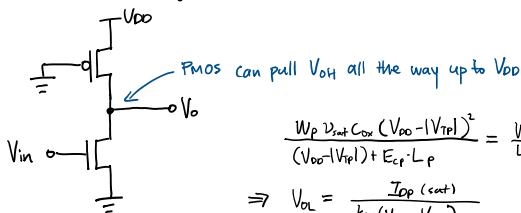 VDD
PMOS can pull VOH all the way up to VDD
Vo
Vin
Wp υsat Cox (VDD-|VTP|)²
(VDD-|VTP|) + Ecp·Lp
=
⇒ VOL = IDP (sat)